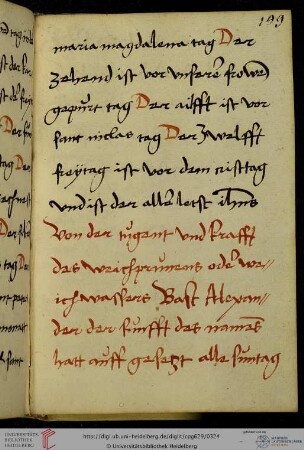 199
maria magdalena tag Der
zehend ist vor vnser frowen
gepurt tag Der ailfft ist vor
sant niclas tag Der zwelfft
freytag ist vor dem cristtag
Vnd ist der aller letst ihus
Von der tugent vnd krafft
des weichprunens oder we-
ich wassers Bast Alexan-
der der funfft des namens
hatt auff gesetzt alle suntag
UNIVERSITÄTS-
BIBLIOTHEK
HEIDELBERG
http://digi.ub.uni-heidelberg.de/diglit/cpg629/0324
© Universitätsbibliothek Heidelberg